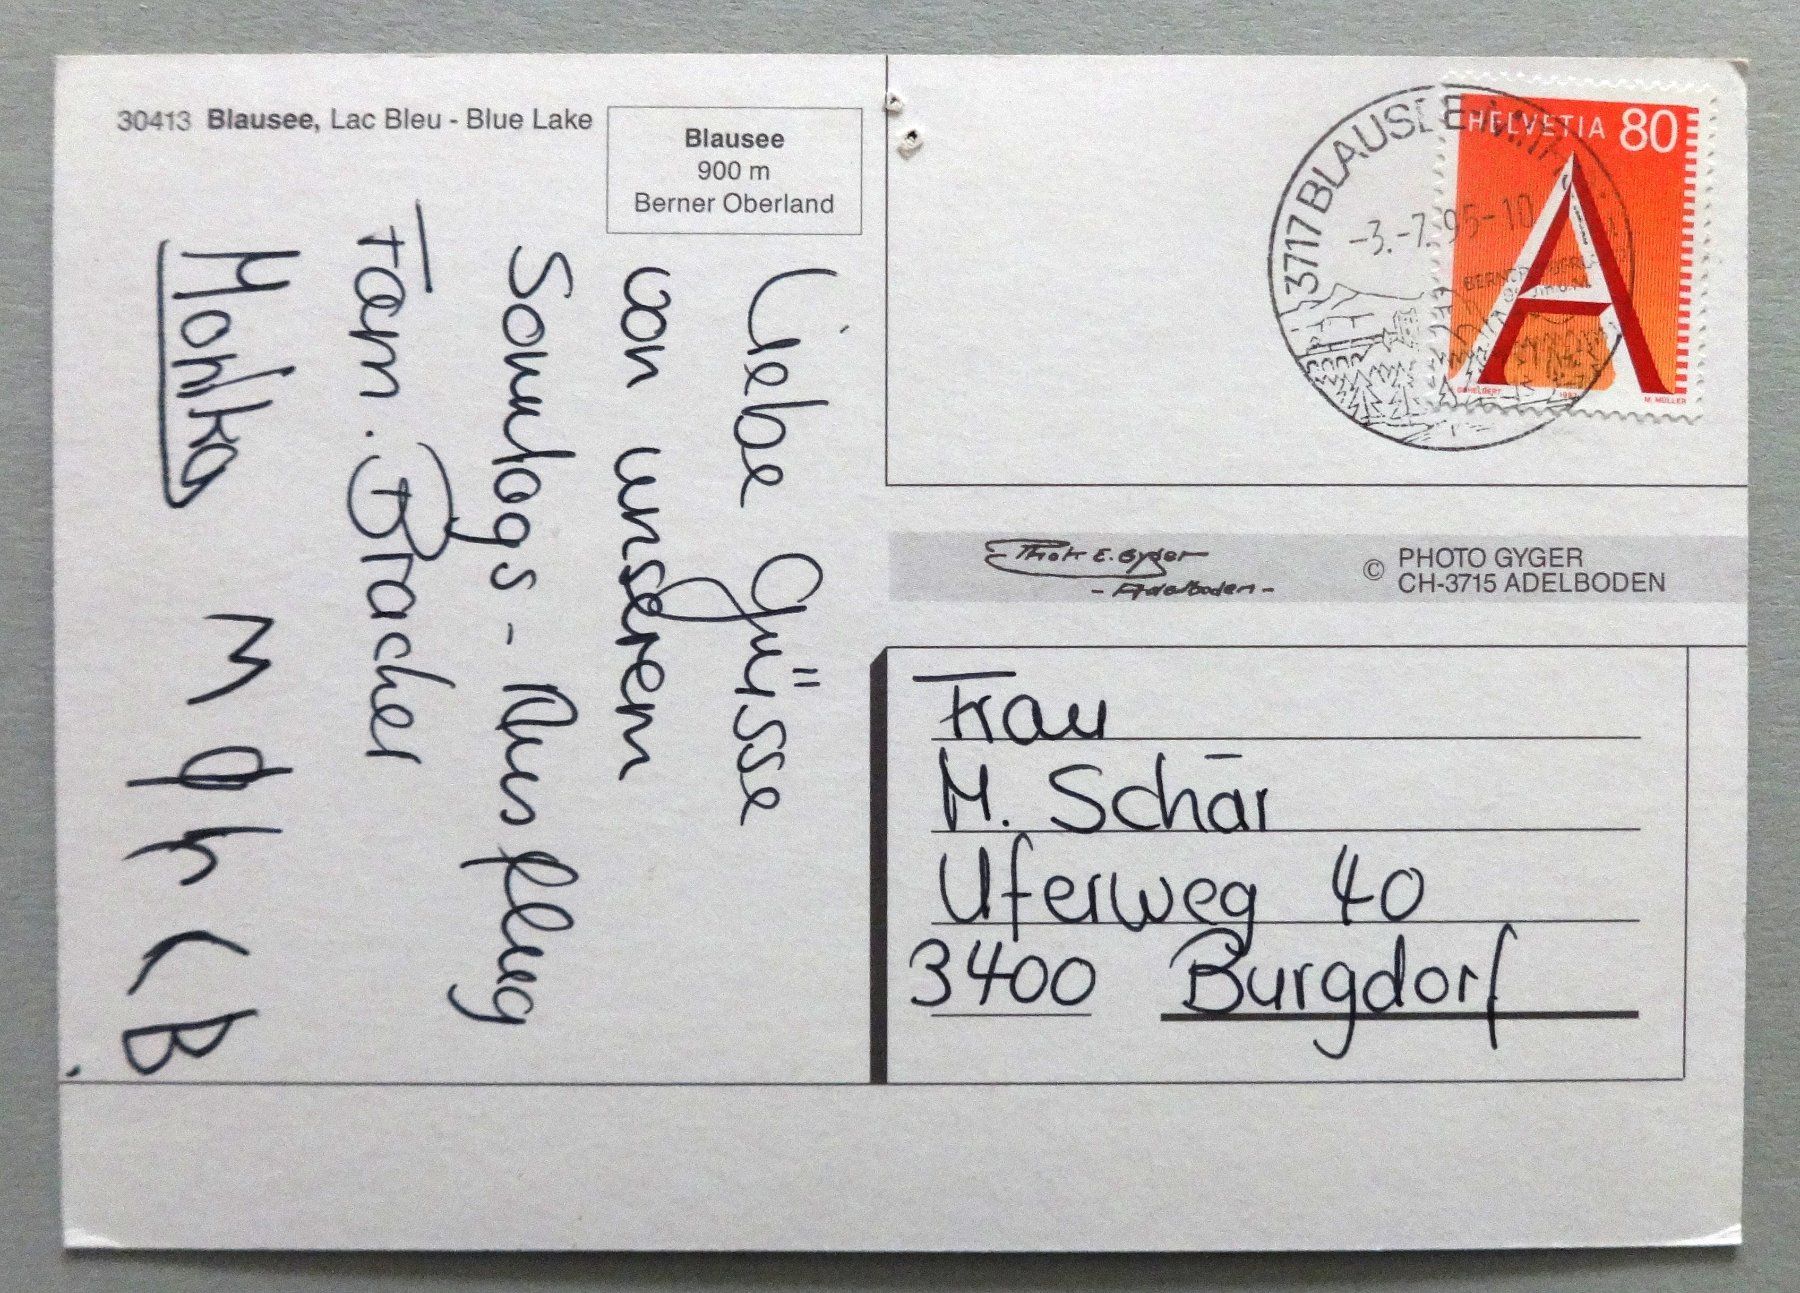 30413 Blausee, Lac Bleu - Blue Lake
Blausee
900 m
Berner Oberland
Liebe Grüsse
von unserem
Sonntags-Ausflug
Fam. Bracher
M
B
3717 BLAUSEE
-3.-7.95-10
HELVETIA 80
A
M. MÜLLER
Photo E. Gyger
- Adelboden -
© PHOTO GYGER
CH-3715 ADELBODEN
Frau
M. Schär
Uferweg 40
3400 Burgdorf